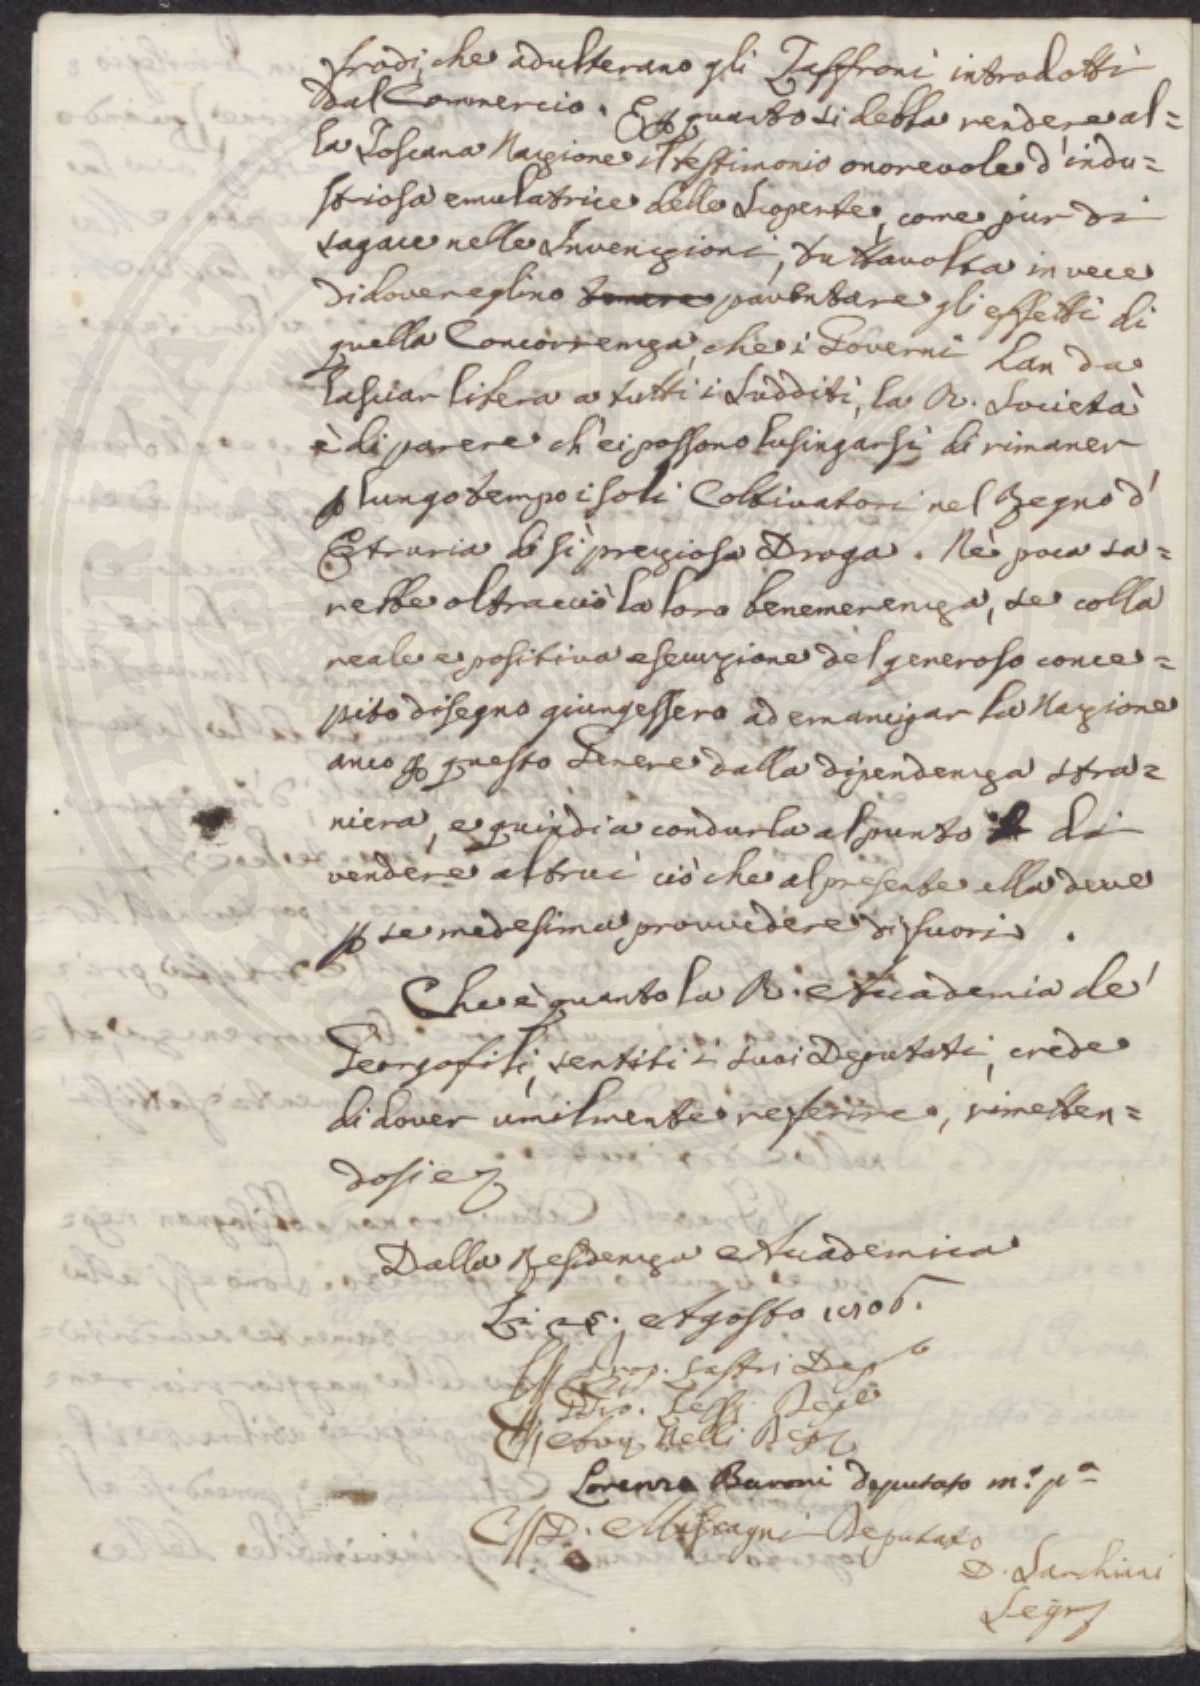 frodi, che adulterano gli Zaffroni introdotti
dal Commercio. E p quanto si debba rendere al=
la Toscana Nazione il testimonio onorevole d'indu=
striosa emulatrice delle Scoperte, come pur di
sagace nelle Invenzioni, tuttavolta in vece
di dovere eglino temere paventare gli effetti di
quella Concorrenza, che i Governi han da
lasciar libera a tutti i Sudditi, la R. Società
è di parere ch'ei possono lusingarsi di rimaner
p lungo tempo i soli Coltivatori nel Regno d'
Etruria di sì preziosa Droga. Nè poca sa=
rebbe oltracciò la loro benemerenza, se colla
reale e positiva esecuzione del generoso conce=
pito disegno giungessero ad emancipar la Nazione
anco p questo Genere dalla dipendenza stra=
niera, e quindi a condurla al punto di
vendere altrui ciò che al presente ella deve
p se medesima provvedere di fuori.
Che è quanto la R. Accademia de'
Georgofili, sentiti i suoi Deputati, crede
di dover umilmente referire, rimetten=
dosi e
Dalla Residenza Accademica
Li Agosto 1806.
Sastri Dep
Dep
Nelli Dep
Lorenzo Baroni deputato m.o p.a
D. Mascagni Deputato
D. Sarchiani
Segr